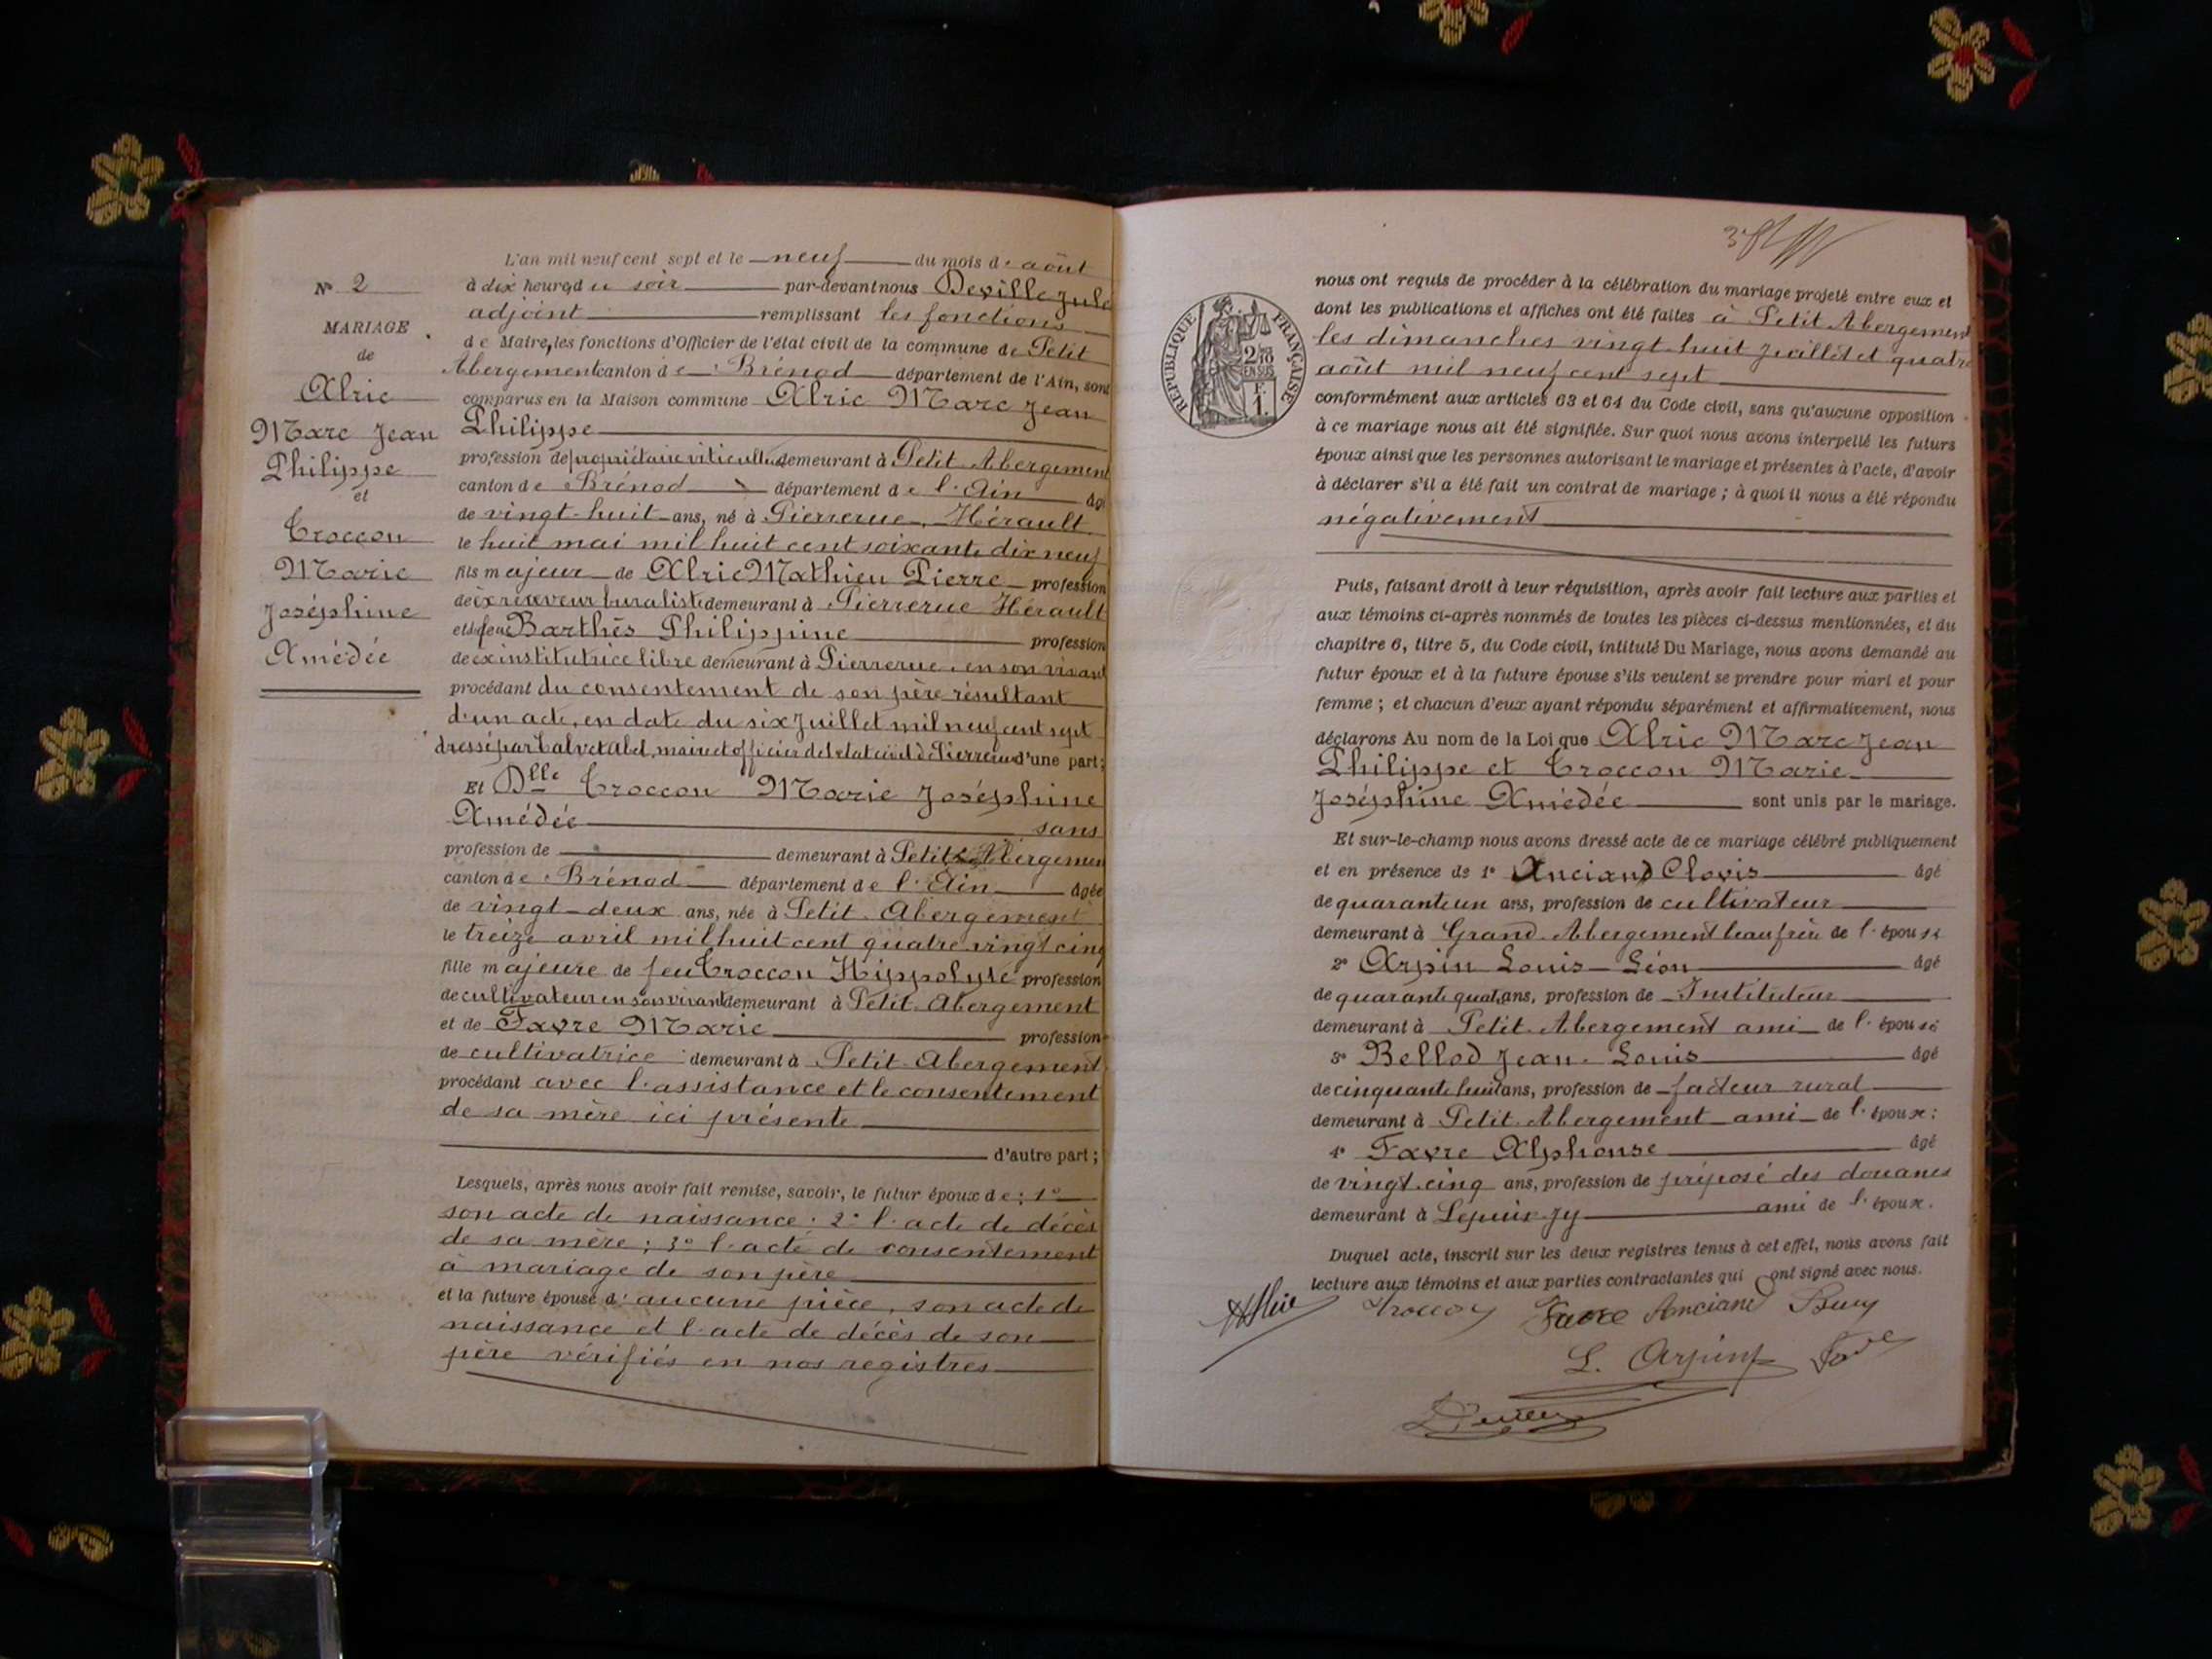 N° 2
MARIAGE
de
Alric
Marc Jean
Philippe
et
Troccon
Marie
Joséphine
Amédée
L'an mil neuf cent sept et le neuf du mois de août
à dix heures du soir par-devant nous Deville Jules
adjoint remplissant les fonctions
de Maire, les fonctions d'Officier de l'état civil de la commune de Petit
Abergement canton de Brénod département de l'Ain, sont
comparus en la Maison commune Alric Marc Jean
Philippe
profession de propriétaire viticulteur demeurant à Petit Abergement
canton de Brénod département de l'Ain âgé
de vingt-huit ans, né à Pierrerue, Hérault
le huit mai mil huit cent soixante dix neuf
fils majeur de Alric Mathieu Pierre profession
de ex receveur buraliste demeurant à Pierrerue Hérault
et de feue Barthès Philippine profession
de ex institutrice libre demeurant à Pierrerue, en son vivant
procédant du consentement de son père résultant
d'un acte, en date du six Juillet mil neuf cent sept
dressé par Calvet Abel, maire et officier de l'état civil de Pierrerue d'une part;
Et Dlle Troccon Marie Joséphine
Amédée sans
profession de demeurant à Petit Abergement
canton de Brénod département de l'Ain âgée
de vingt-deux ans, née à Petit-Abergement
le treize avril mil huit cent quatre vingt cinq
fille majeure de feu Troccon Hippolyte profession
de cultivateur en son vivant demeurant à Petit-Abergement
et de Favre Marie profession
de cultivatrice demeurant à Petit-Abergement
procédant avec l'assistance et le consentement
de sa mère ici présente
d'autre part;
Lesquels, après nous avoir fait remise, savoir, le futur époux de : 1°
son acte de naissance. 2° l'acte de décès
de sa mère; 3° l'acte de consentement
à mariage de son père
et la future épouse d'aucune pièce, son acte de
naissance et l'acte de décès de son
père vérifiés en nos registres
RÉPUBLIQUE FRANÇAISE
2/10
EN SUS
F.
1.
nous ont requis de procéder à la célébration du mariage projeté entre eux et
dont les publications et affiches ont été faites à Petit Abergement
les dimanches vingt-huit Juillet et quatre
août mil neuf cent sept
conformément aux articles 63 et 64 du Code civil, sans qu'aucune opposition
à ce mariage nous ait été signifiée. Sur quoi nous avons interpellé les futurs
époux ainsi que les personnes autorisant le mariage et présentes à l'acte, d'avoir
à déclarer s'il a été fait un contrat de mariage ; à quoi il nous a été répondu
négativement
Puis, faisant droit à leur réquisition, après avoir fait lecture aux parties et
aux témoins ci-après nommés de toutes les pièces ci-dessus mentionnées, et du
chapitre 6, titre 5, du Code civil, intitulé Du Mariage, nous avons demandé au
futur époux et à la future épouse s'ils veulent se prendre pour mari et pour
femme ; et chacun d'eux ayant répondu séparément et affirmativement, nous
déclarons Au nom de la Loi que Alric Marc Jean
Philippe et Troccon Marie
Joséphine Amédée sont unis par le mariage.
Et sur-le-champ nous avons dressé acte de ce mariage célébré publiquement
et en présence de 1° Anciand Clovis âgé
de quarante un ans, profession de cultivateur
demeurant à Grand-Abergement beau frère de l'épouse
2° Arpin Louis-Léon âgé
de quarante quatre ans, profession de Instituteur
demeurant à Petit-Abergement ami de l'épouse
3° Bellod Jean-Louis âgé
de cinquante huit ans, profession de facteur rural
demeurant à Petit-Abergement ami de l'époux;
4° Favre Alphonse âgé
de vingt-cinq ans, profession de préposé des douanes
demeurant à ami de l'époux.
Duquel acte, inscrit sur les deux registres tenus à cet effet, nous avons fait
lecture aux témoins et aux parties contractantes qui ont signé avec nous.
Alric Troccon Favre Anciand
L. Arpin Favre